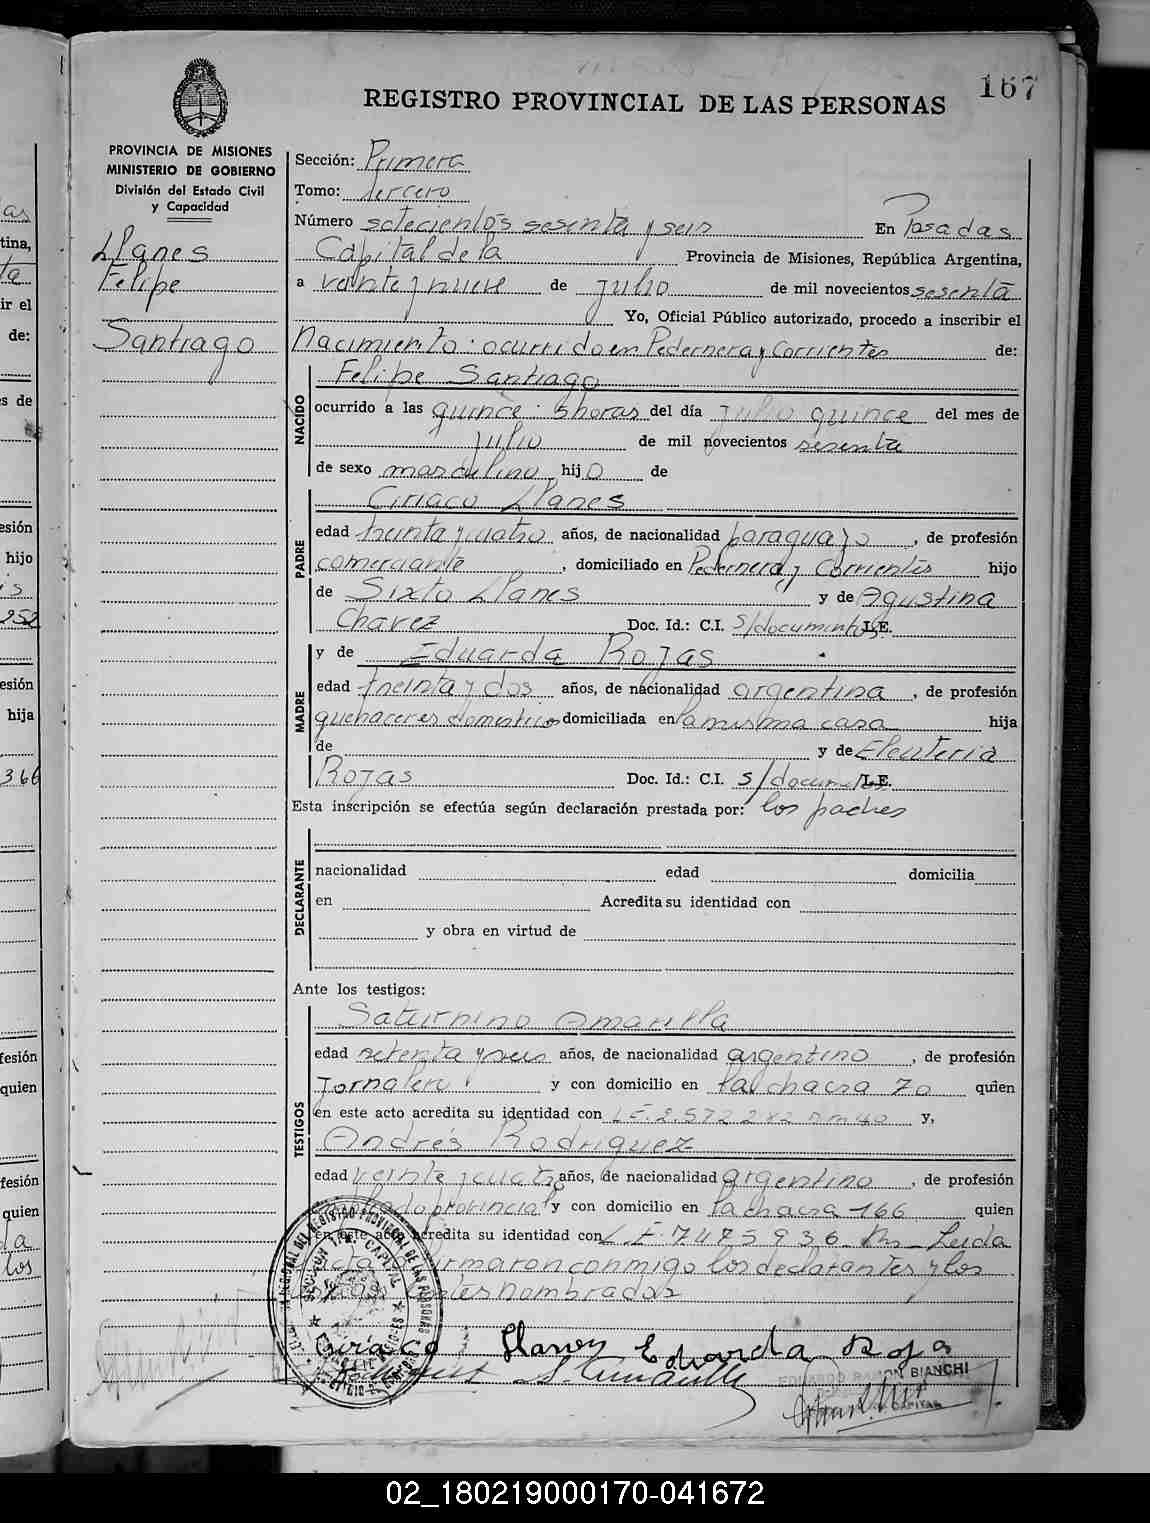 167
REGISTRO PROVINCIAL DE LAS PERSONAS
PROVINCIA DE MISIONES
MINISTERIO DE GOBIERNO
División del Estado Civil
y Capacidad
Llanes
Felipe
Santiago
Sección: Primera
Tomo: tercero
Número setecientos sesenta y seis En Posadas
Capital de la Provincia de Misiones, República Argentina,
a veinte y nueve de julio de mil novecientos sesenta
Yo, Oficial Público autorizado, procedo a inscribir el
Nacimiento: ocurrido en Pedernera y Corrientes de:
NACIDO
Felipe Santiago
ocurrido a las quince horas del día julio quince del mes de
julio de mil novecientos sesenta
de sexo masculino hijo de
PADRE
Ciriaco Llanes
edad treinta y cuatro años, de nacionalidad paraguayo, de profesión
comerciante, domiciliado en Pedernera y Corrientes hijo
de Sixto Llanes y de Agustina
Chavez Doc. Id.: C.I. s/documentos L.E.
MADRE
y de Eduarda Rojas
edad treinta y dos años, de nacionalidad argentina, de profesión
quehaceres domesticos domiciliada en la misma casa hija
de y de Eleuteria
Rojas Doc. Id.: C.I. s/documentos L.E.
Esta inscripción se efectúa según declaración prestada por: los padres
DECLARANTE
nacionalidad edad domicilia
en Acredita su identidad con
y obra en virtud de
Ante los testigos:
TESTIGOS
Saturnino Amarilla
edad setenta y seis años, de nacionalidad argentino, de profesión
Jornalero y con domicilio en la chacra 70 quien
en este acto acredita su identidad con L.E. 2.572.282 D.M. 40 y,
Andrés Rodriguez
edad veinte y cuatro años, de nacionalidad argentino, de profesión
provincial y con domicilio en la chacra 166 quien
en este acto acredita su identidad con L.E. 7475936 Leida
firmaron conmigo los declarantes y los
antes nombrados
Ciriaco Llanes Eduarda Rojas
EDUARDO RAMON BIANCHI
CAPITAL
02_180219000170-041672